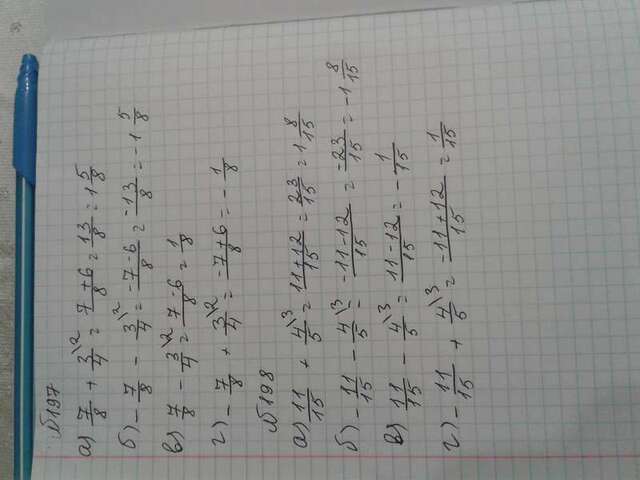 №197
а) 7/8 + 3/4\2 = 7+6/8 = 13/8 = 1 5/8
б) - 7/8 - 3/4\2 = -7-6/8 = -13/8 = -1 5/8
в) 7/8 - 3/4\2 = 7-6/8 = 1/8
г) - 7/8 + 3/4\2 = -7+6/8 = - 1/8
№198
а) 11/15 + 4/5\3 = 11+12/15 = 23/15 = 1 8/15
б) - 11/15 - 4/5\3 = -11-12/15 = -23/15 = -1 8/15
в) 11/15 - 4/5\3 = 11-12/15 = - 1/15
г) - 11/15 + 4/5\3 = -11+12/15 = 1/15